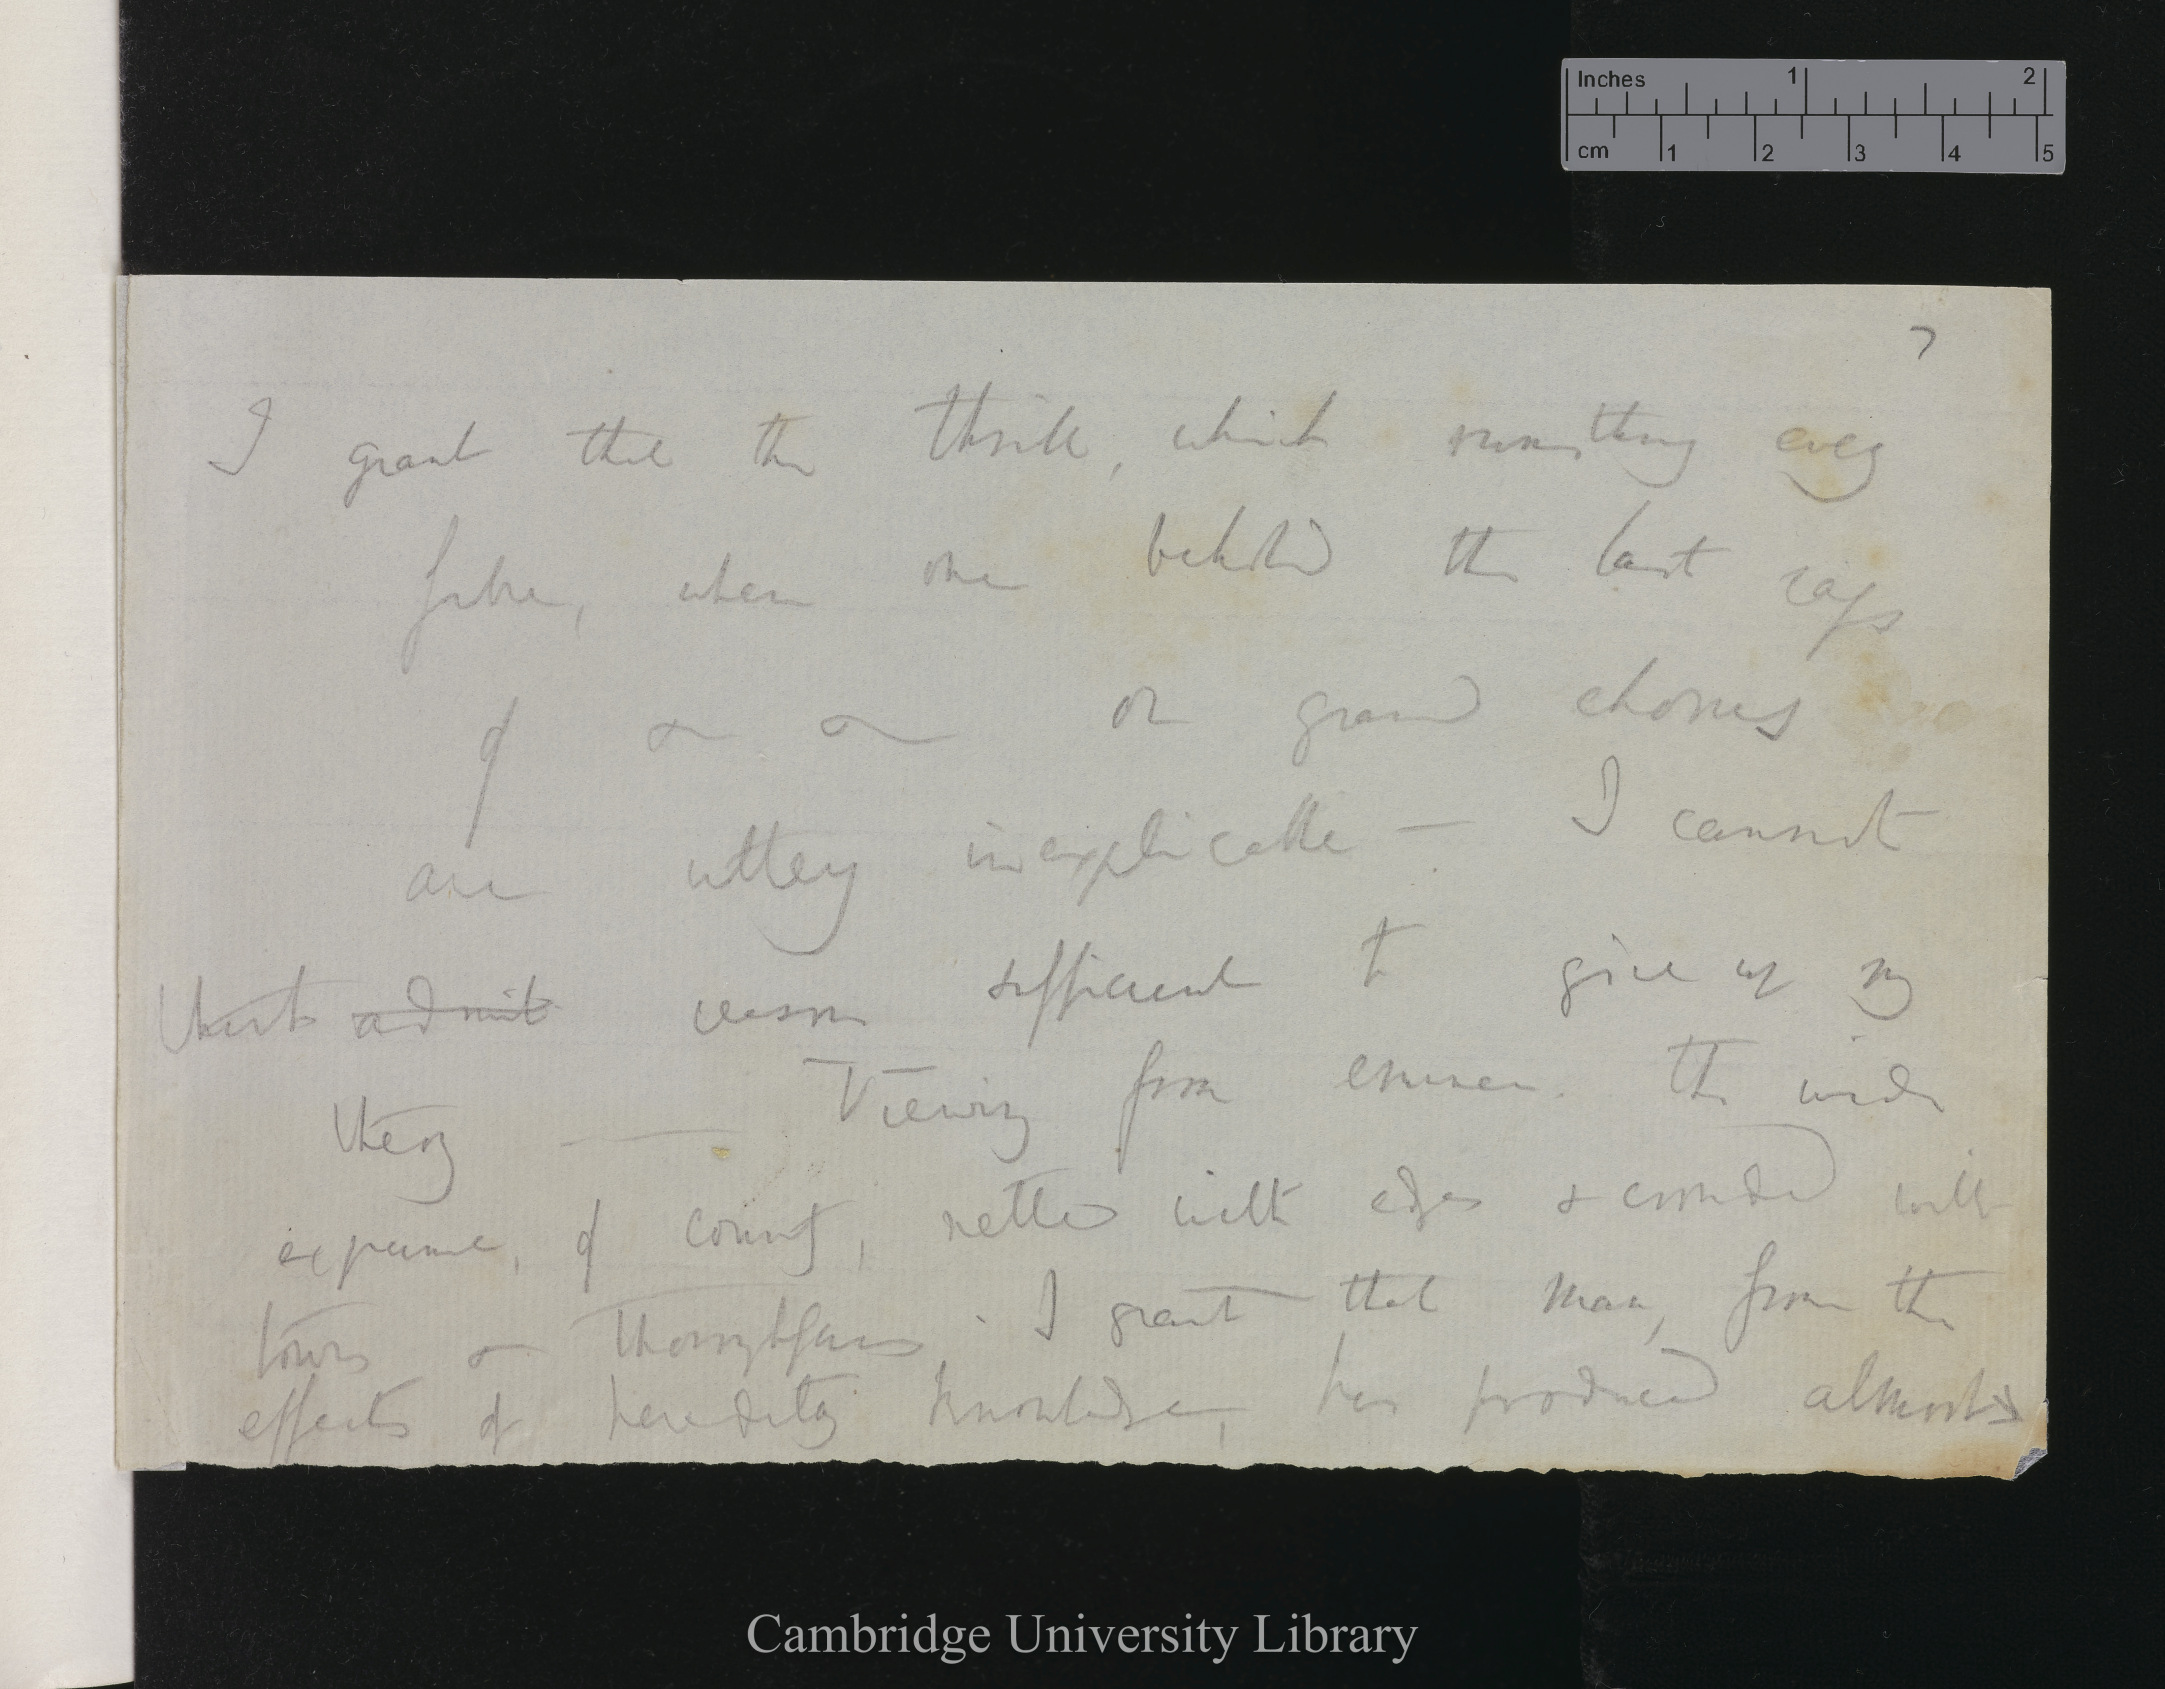 Inches 1 2
cm 1 2 3 4 5
7
I grant that the thrill, which runs through every
fibre, when one behold the last rays
of & & or grand chorus
are utterly inexplicable — I cannot
admit reason sufficient to give up my
theory — Viewing from eminence. the wide
expanse, of country, netted with edges & crowded with
towns & thoroughfares. I grant that man, from the
effects of hereditary knowledge, has produced almost
Cambridge University Library